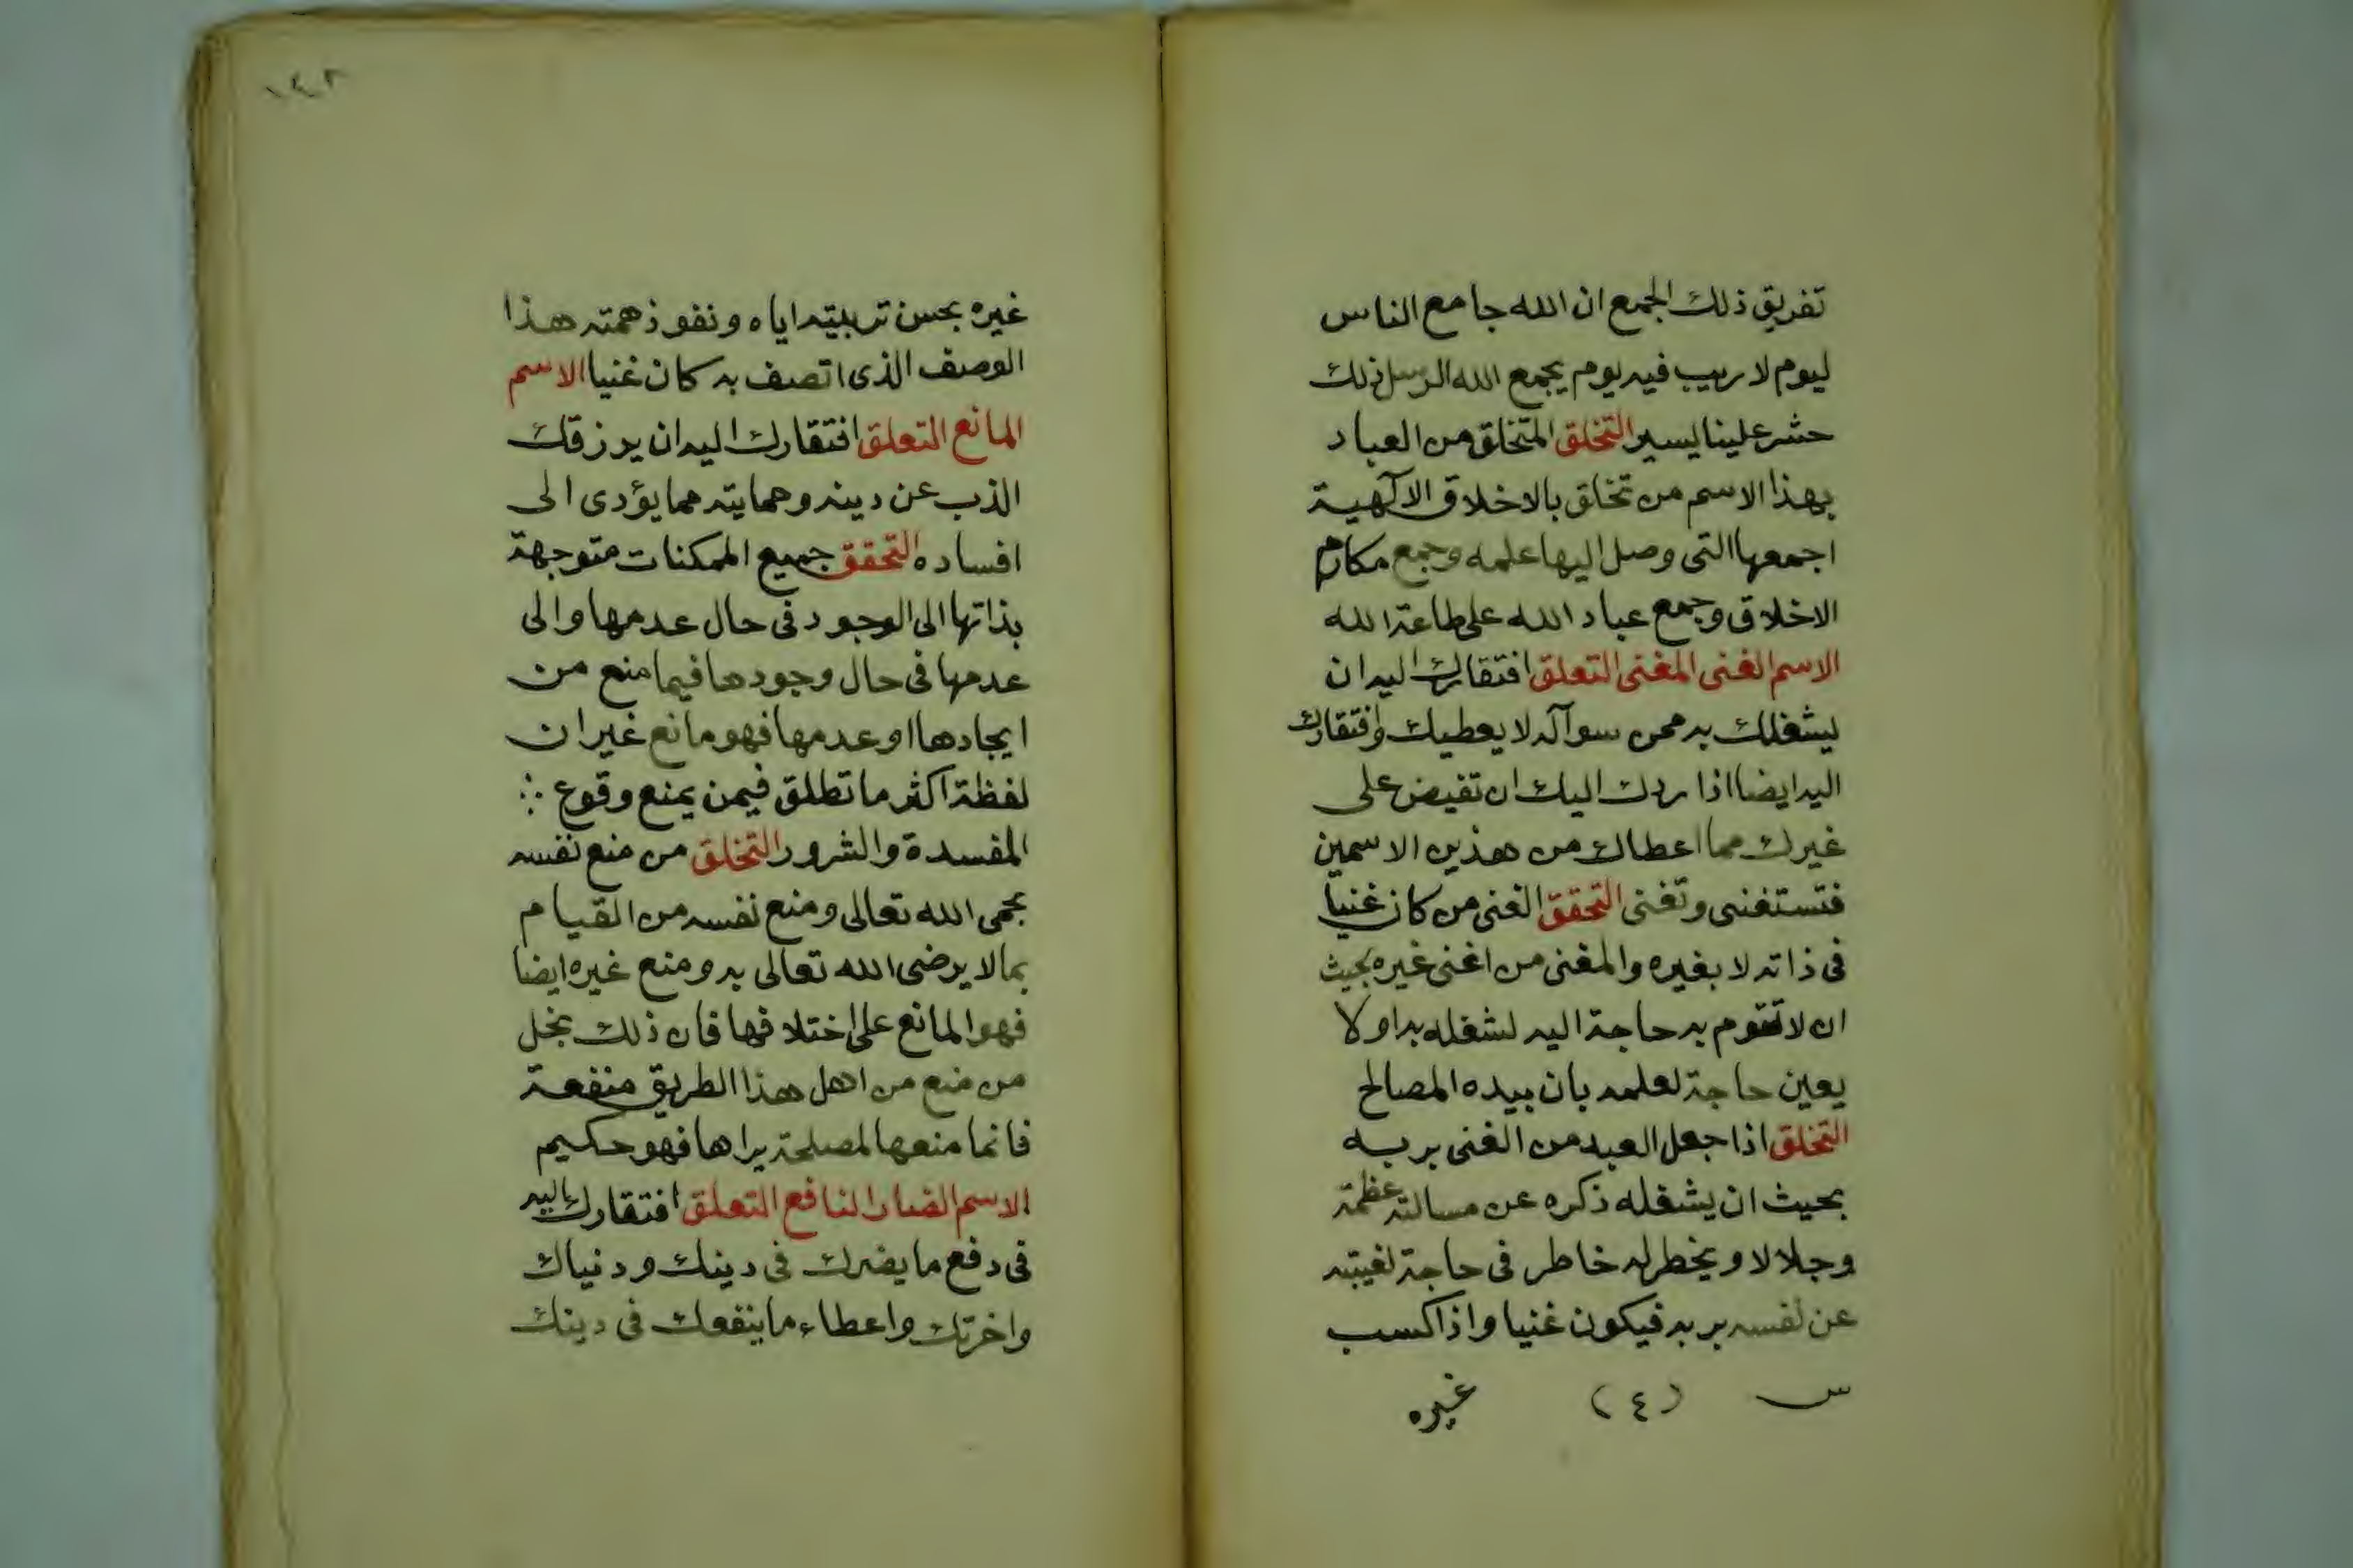 تفريق ذلك الجمع ان الله جامع الناس
ليوم لا ريب فيه يوم يجمع الله الرسل ذلك
حشر علينا يسير التخلق المتخلق من العباد
بهذا الاسم من تخلق بالاخلاق الالهية
اجمعها التى وصل اليها علمه وجمع مكارم
الاخلاق وجمع عباد الله على طاعة الله
الاسم الغنى المغنى التعلق افتقارك اليه ان
ليشغلك به عن سوآله لا يعطيك وافتقارك
اليه ايضا اذا ردك اليك ان تفيض على
غيرك مما اعطاك من هذين الاسمين
فتستغنى وتغنى التحقق الغنى من كان غنيا
فى ذاته لا بغيره والمغنى من اغنى غيره بحيث
ان لا تقوم به حاجة اليه لشغله به اولا
يعين حاجة لعلمه بان بيده المصالح
التخلق اذا جعل العبد من الغنى بربه
بحيث ان يشغله ذكره عن مسالته عظمة
وجلالا ويخطر له خاطر فى حاجة لغيبته
عن نفسه بربه فيكون غنيا واذا كسب
س (٤) غيره
١٤٢
غيره بحسن تربيته اياه ونفوذ همته هذا
الوصف الذى اتصف به كان غنيا الاسم
المانع التعلق افتقارك اليه ان يرزقك
الذب عن دينه وحمايته مما يؤدى الى
افساده التحقق جميع الممكنات متوجهة
بذاتها الى الوجود فى حال عدمها والى
عدمها فى حال وجودها فيما منع من
ايجادها او عدمها فهو مانع غير ان
لفظة اكثر ما تطلق فيمن يمنع وقوع
المفسدة والشرور التخلق من منع نفسه
بحمى الله تعالى ومنع نفسه من القيام
بما لا يرضى الله تعالى به ومنع غيره ايضا
فهو المانع على اختلافها فان ذلك بخل
من منع من اهل هذا الطريق منفعة
فانما منعها لمصلحة يراها فهو حكيم
الاسم الضار النافع التعلق افتقارك اليه
فى دفع ما يضرك فى دينك ودنياك
واخرتك واعطاء ما ينفعك فى دينك